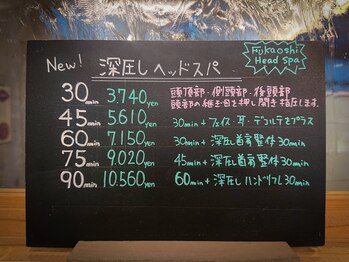 New! 深圧しヘッドスパ
Fukaoshi
Head Spa
30min 3.740yen 頭頂部・側頭部・後頭部
頭部の継ぎ目を押し開き指圧します。
45min 5.610yen 30min+フェイス・耳・デコルテをプラス
60min 7.150yen 30min+深圧し首肩整体30min
75min 9.020yen 45min+深圧し首肩整体30min
90min 10.560yen 60min+深圧しハンドリフレ30min